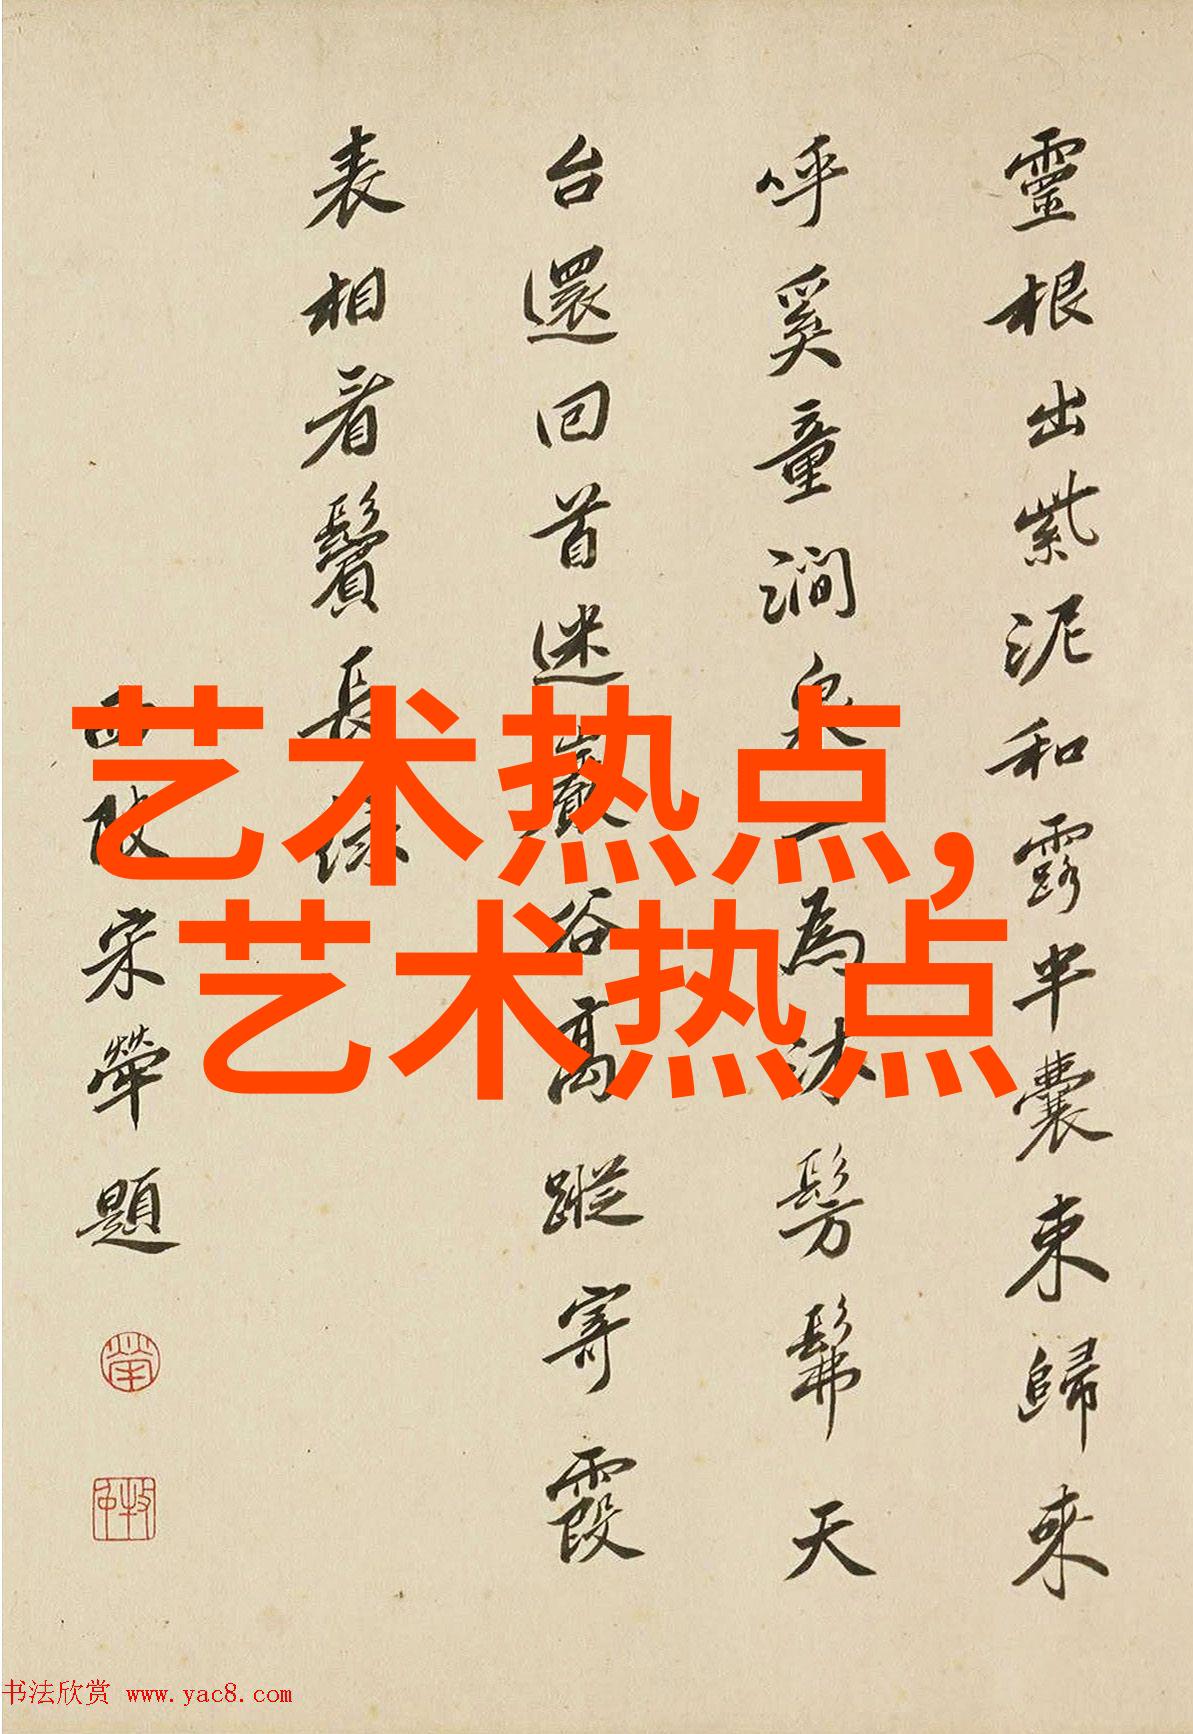 靈根出紫泥和露半囊束歸来
呼奚童澗泉一為沐髣髴天
台還回首迷巖谷高蹤寄霞
表相看鬢長緑
西陂宋犖題
艺术热点,
艺术热点
书法欣赏 www.yac8.com